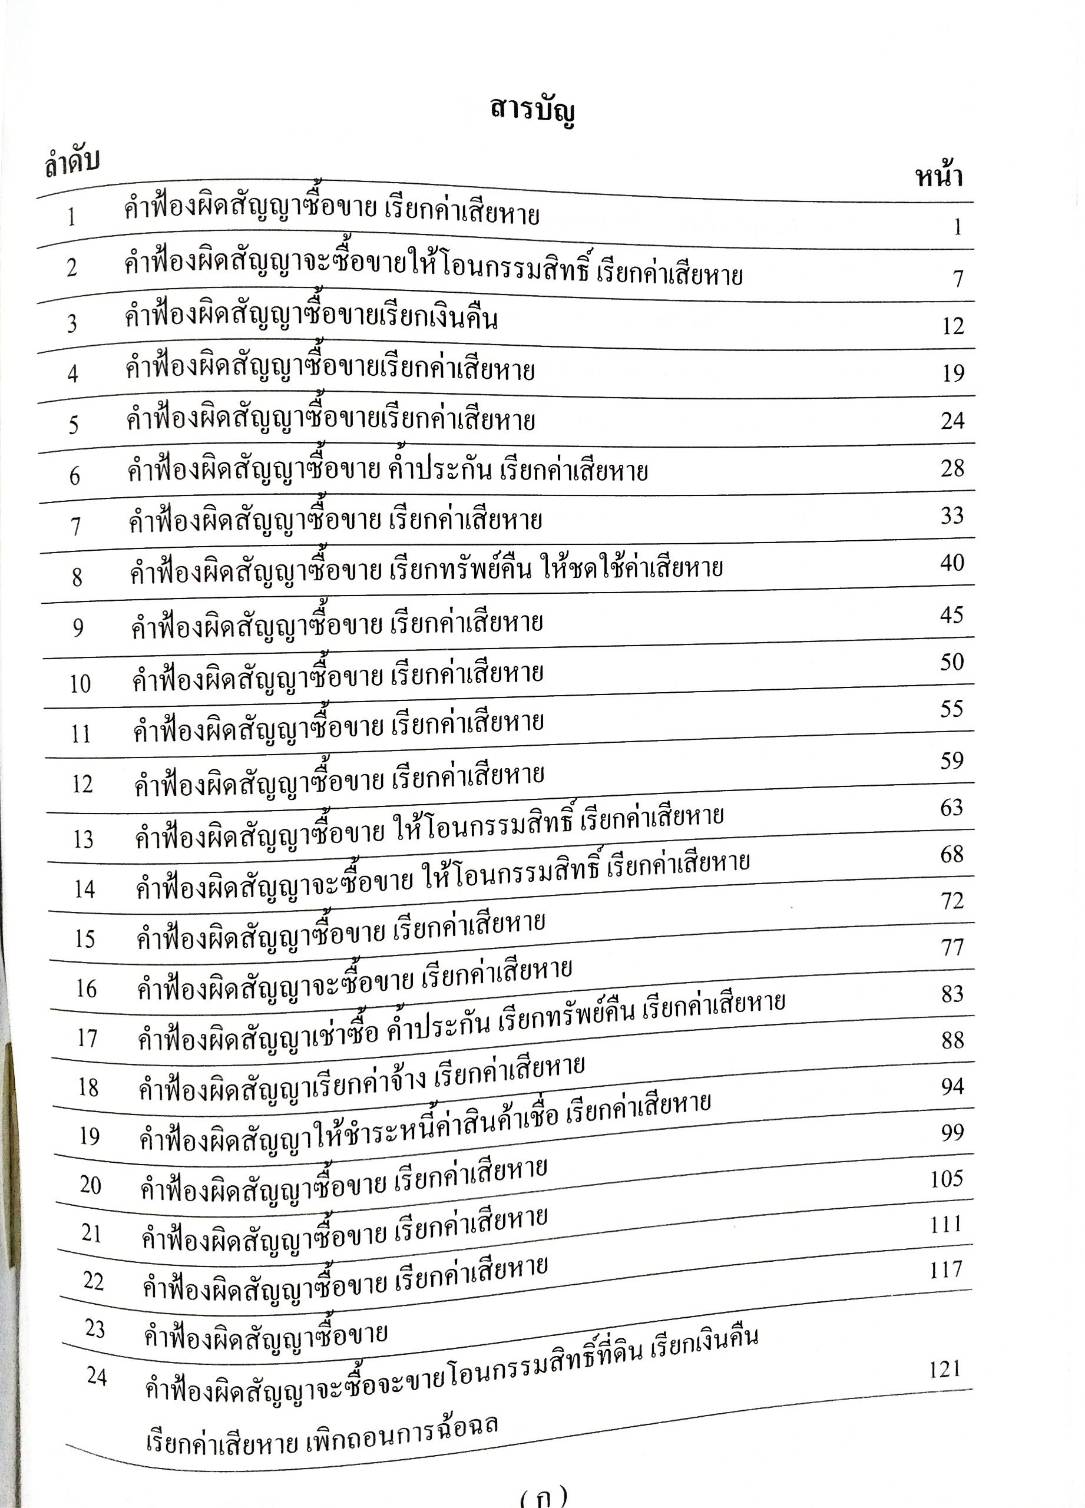 สารบัญ
ลำดับ หน้า
1 คำฟ้องผิดสัญญาซื้อขาย เรียกค่าเสียหาย 1
2 คำฟ้องผิดสัญญาจะซื้อขายให้โอนกรรมสิทธิ์ เรียกค่าเสียหาย 7
3 คำฟ้องผิดสัญญาซื้อขายเรียกเงินคืน 12
4 คำฟ้องผิดสัญญาซื้อขายเรียกค่าเสียหาย 19
5 คำฟ้องผิดสัญญาซื้อขายเรียกค่าเสียหาย 24
6 คำฟ้องผิดสัญญาซื้อขาย ค้ำประกัน เรียกค่าเสียหาย 28
7 คำฟ้องผิดสัญญาซื้อขาย เรียกค่าเสียหาย 33
8 คำฟ้องผิดสัญญาซื้อขาย เรียกทรัพย์คืน ให้ชดใช้ค่าเสียหาย 40
9 คำฟ้องผิดสัญญาซื้อขาย เรียกค่าเสียหาย 45
10 คำฟ้องผิดสัญญาซื้อขาย เรียกค่าเสียหาย 50
11 คำฟ้องผิดสัญญาซื้อขาย เรียกค่าเสียหาย 55
12 คำฟ้องผิดสัญญาซื้อขาย เรียกค่าเสียหาย 59
13 คำฟ้องผิดสัญญาซื้อขาย ให้โอนกรรมสิทธิ์ เรียกค่าเสียหาย 63
14 คำฟ้องผิดสัญญาจะซื้อขาย ให้โอนกรรมสิทธิ์ เรียกค่าเสียหาย 68
15 คำฟ้องผิดสัญญาซื้อขาย เรียกค่าเสียหาย 72
16 คำฟ้องผิดสัญญาจะซื้อขาย เรียกค่าเสียหาย 77
17 คำฟ้องผิดสัญญาเช่าซื้อ ค้ำประกัน เรียกทรัพย์คืน เรียกค่าเสียหาย 83
18 คำฟ้องผิดสัญญาเรียกค่าจ้าง เรียกค่าเสียหาย 88
19 คำฟ้องผิดสัญญาให้ชำระหนี้ค่าสินค้าเชื่อ เรียกค่าเสียหาย 94
20 คำฟ้องผิดสัญญาซื้อขาย เรียกค่าเสียหาย 99
21 คำฟ้องผิดสัญญาซื้อขาย เรียกค่าเสียหาย 105
22 คำฟ้องผิดสัญญาซื้อขาย เรียกค่าเสียหาย 111
23 คำฟ้องผิดสัญญาซื้อขาย 117
24 คำฟ้องผิดสัญญาจะซื้อจะขายโอนกรรมสิทธิ์ที่ดิน เรียกเงินคืน
เรียกค่าเสียหาย เพิกถอนการฉ้อฉล 121
( ก )